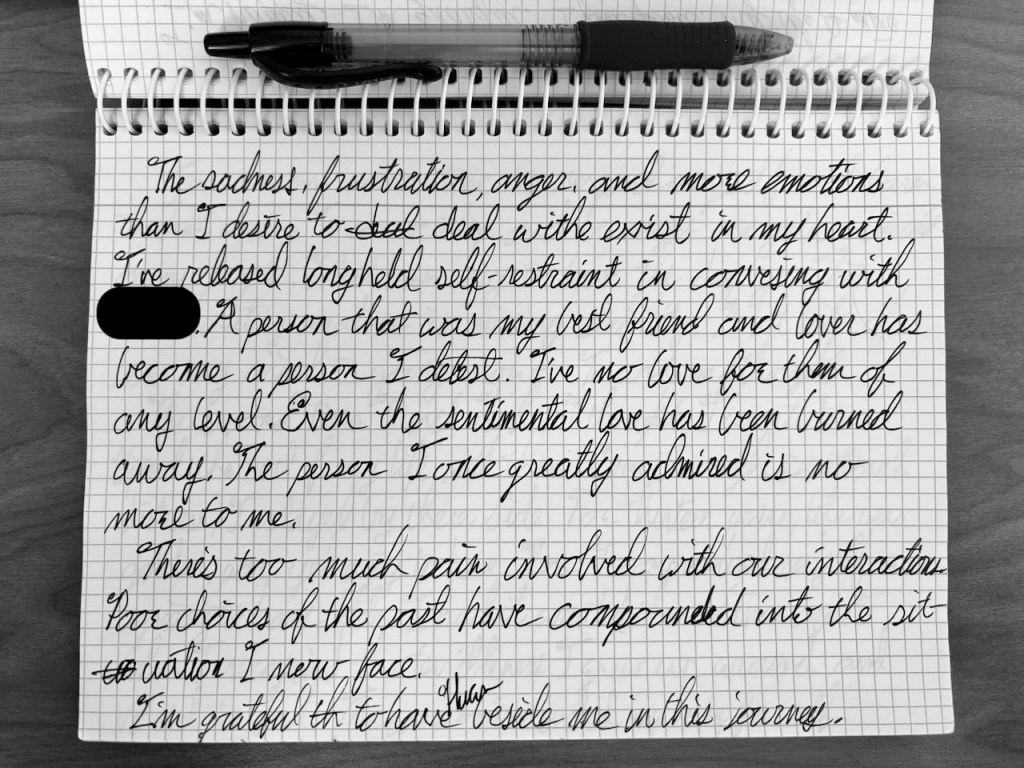 The sadness, frustration, anger, and more emotions
than I desire to deal withe exist in my heart.
I've released longheld self-restraint in convesing with
. A person that was my best friend and lover has
become a person I detest. I've no love for them of
any level. Even the sentimental love has been burned
away. The person I once greatly admired is no
more to me.
There's too much pain involved with our interaction
Poor choices of the past have compounded into the sit-
uation I now face.
I'm grateful th to have beside me in this journey.